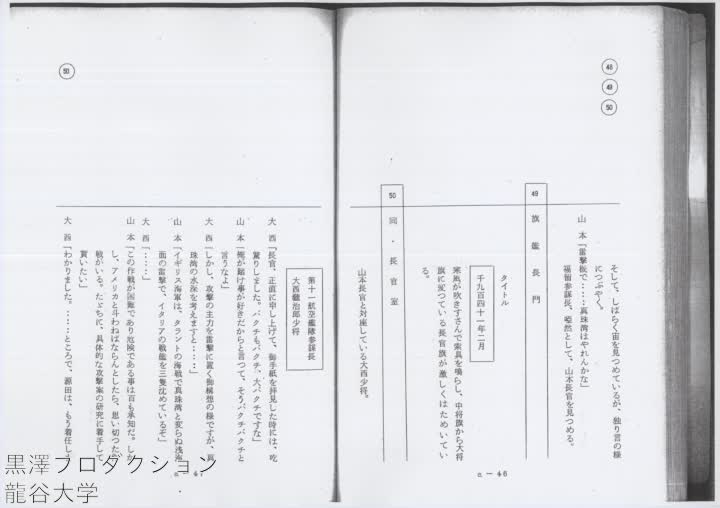 48
49
50
そして、しばらく宙を見つめているが、独り言の様
につぶやく。
山本「雷撃機で‥‥真珠湾はやれんかな」
福留参謀長、唖然として、山本長官を見つめる。
49 旗艦長門
タイトル
千九百四十一年二月
寒風が吹きすさんで索具を鳴らし、中将旗から大将
旗に変つている長官旗が激しくはためいてい
る。
50 同・長官室
山本長官と対座している大西少将。
a-46
50
第十一航空艦隊参謀長
大西瀧治郎少将
大西「長官、正直に申し上げて、御手紙を拝見した時には、吃
驚りしました。バクチもバクチ、大バクチですな」
山本「俺が賭け事が好きだからと言つて、そうバクチバクチと
言うなよ」
大西「しかし、攻撃の主力を雷撃に置く御構想の様ですが、真
珠湾の水深を考えますと‥‥」
山本「イギリス海軍は、タラントの海戦で真珠湾と変らぬ浅海
面の雷撃で、イタリアの戦艦を三隻沈めているぞ」
大西「‥‥‥」
山本「この作戦が困難であり危険である事は百も承知だ。しか
し、アメリカと斗わねばならんとしたら、思い切つた
戦がいる。ただちに、具体的な攻撃案の研究に着手して
貰いたい」
大西「わかりました。‥‥‥ところで、源田は、もう着任し
a-47
黒澤プロダクション
龍谷大学